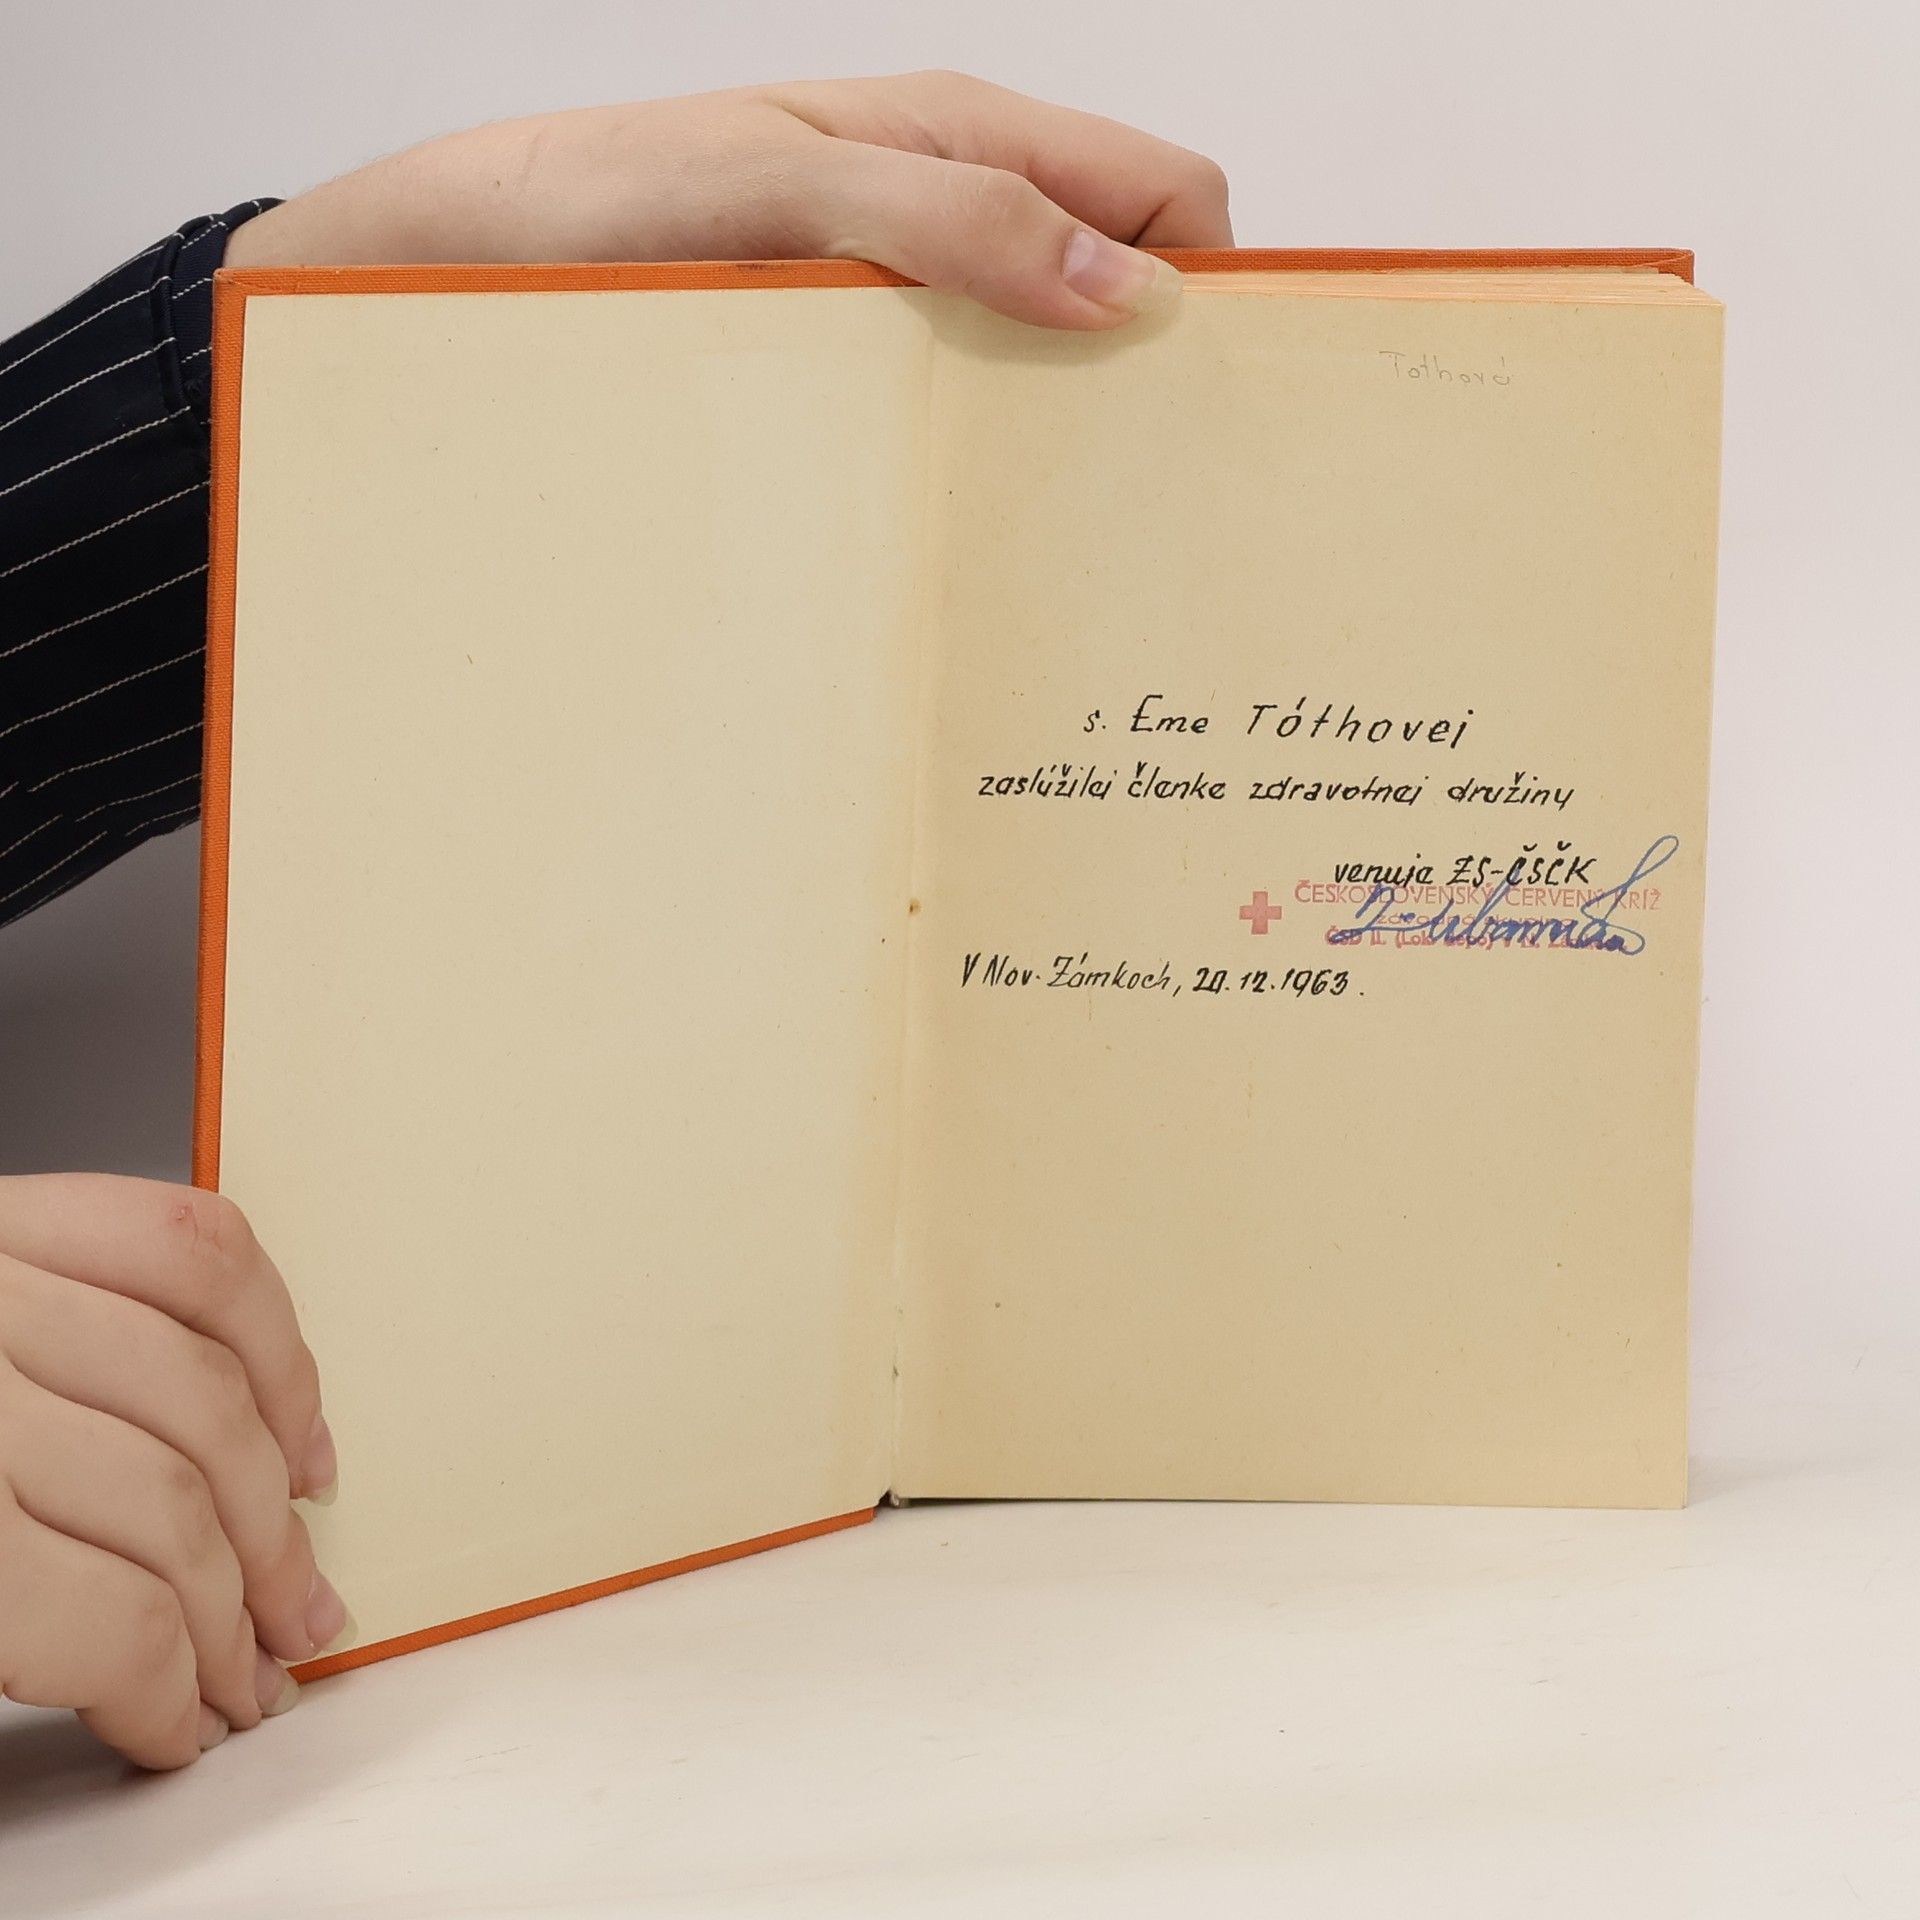 Tothová
s. Eme Tóthovej
zaslúžilej členke zdravotnej družiny
venuje ZS-ČSČK
ČESKOSLOVENSKÝ ČERVENÝ KRÍŽ
závodná skupina
ČSD II. (Lok. depo) v N. Zámkoch
V Nov. Zámkoch, 20.12.1963.